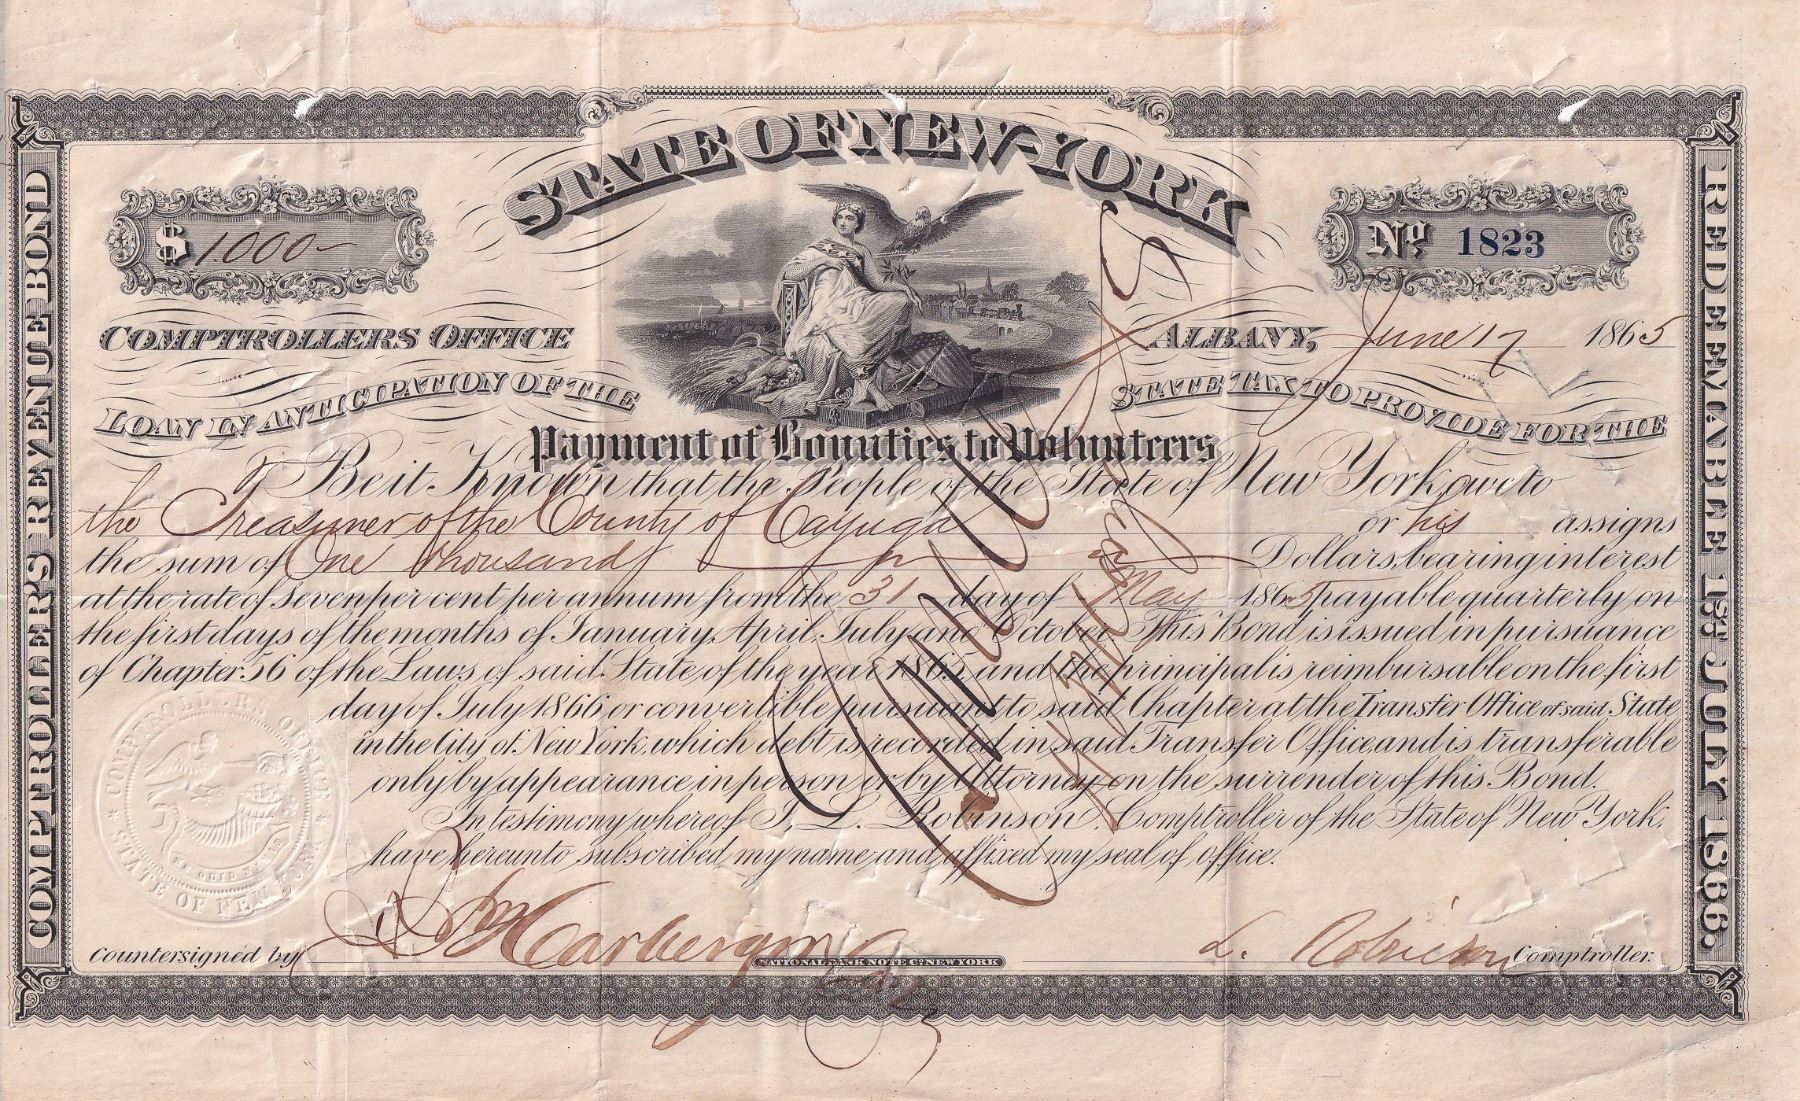 STATE OF NEW-YORK
$ 1.000-
No. 1823
COMPTROLLERS OFFICE
ALBANY, June 17 1865
LOAN IN ANTICIPATION OF THE STATE TAX TO PROVIDE FOR THE
Payment of Bounties to Volunteers
Be it Known that the People of the State of New York owe to
the Treasurer of the County of Cayuga or his assigns
the sum of One thousand Dollars, bearing interest
at the rate of seven per cent per annum from the 31 day of May 1865 payable quarterly on
the first days of the months of January, April, July and October. This Bond is issued in pursuance
of Chapter 56 of the Laws of said State of the year 1865, and the principal is reimbursable on the first
day of July 1866 or convertible pursuant to said Chapter at the Transfer Office of said State
in the City of New York, which debt is recorded in said Transfer Office and is transferable
only by appearance in person or by Attorney on the surrender of this Bond.
In testimony whereof I, L. Robinson, Comptroller of the State of New York,
have hereunto subscribed my name and affixed my seal of office.
Countersigned by
L. Robinson Comptroller.
NATIONAL BANK NOTE CO. NEW YORK
COMPTROLLER'S REVENUE BOND
REDEEMABLE 1ST JULY 1866.
COMPTROLLERS OFFICE
STATE OF NEW YORK